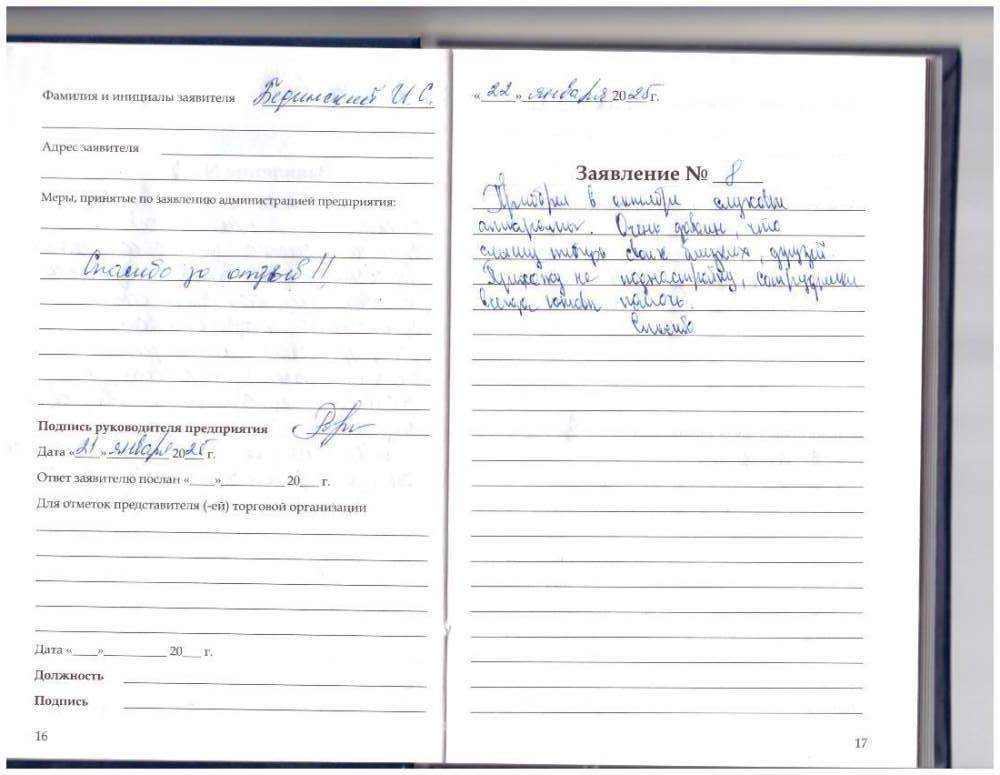 Фамилия и инициалы заявителя Бединский И.С.
Адрес заявителя
Меры, принятые по заявлению администрацией предприятия:
Спасибо за отзыв!!
Подпись руководителя предприятия
Дата «21» января 2025 г.
Ответ заявителю послан «____»__________ 20___ г.
Для отметок представителя (-ей) торговой организации
Дата «____»__________ 20___ г.
Должность
Подпись
16
«22» января 2025г.
Заявление № 8
Приобрел в октябре слуховые
аппараты. Очень доволен, что
слышу теперь своих близких, друзей.
Прихожу на поднастройку, сотрудники
всегда готовы помочь.
Спасибо
17